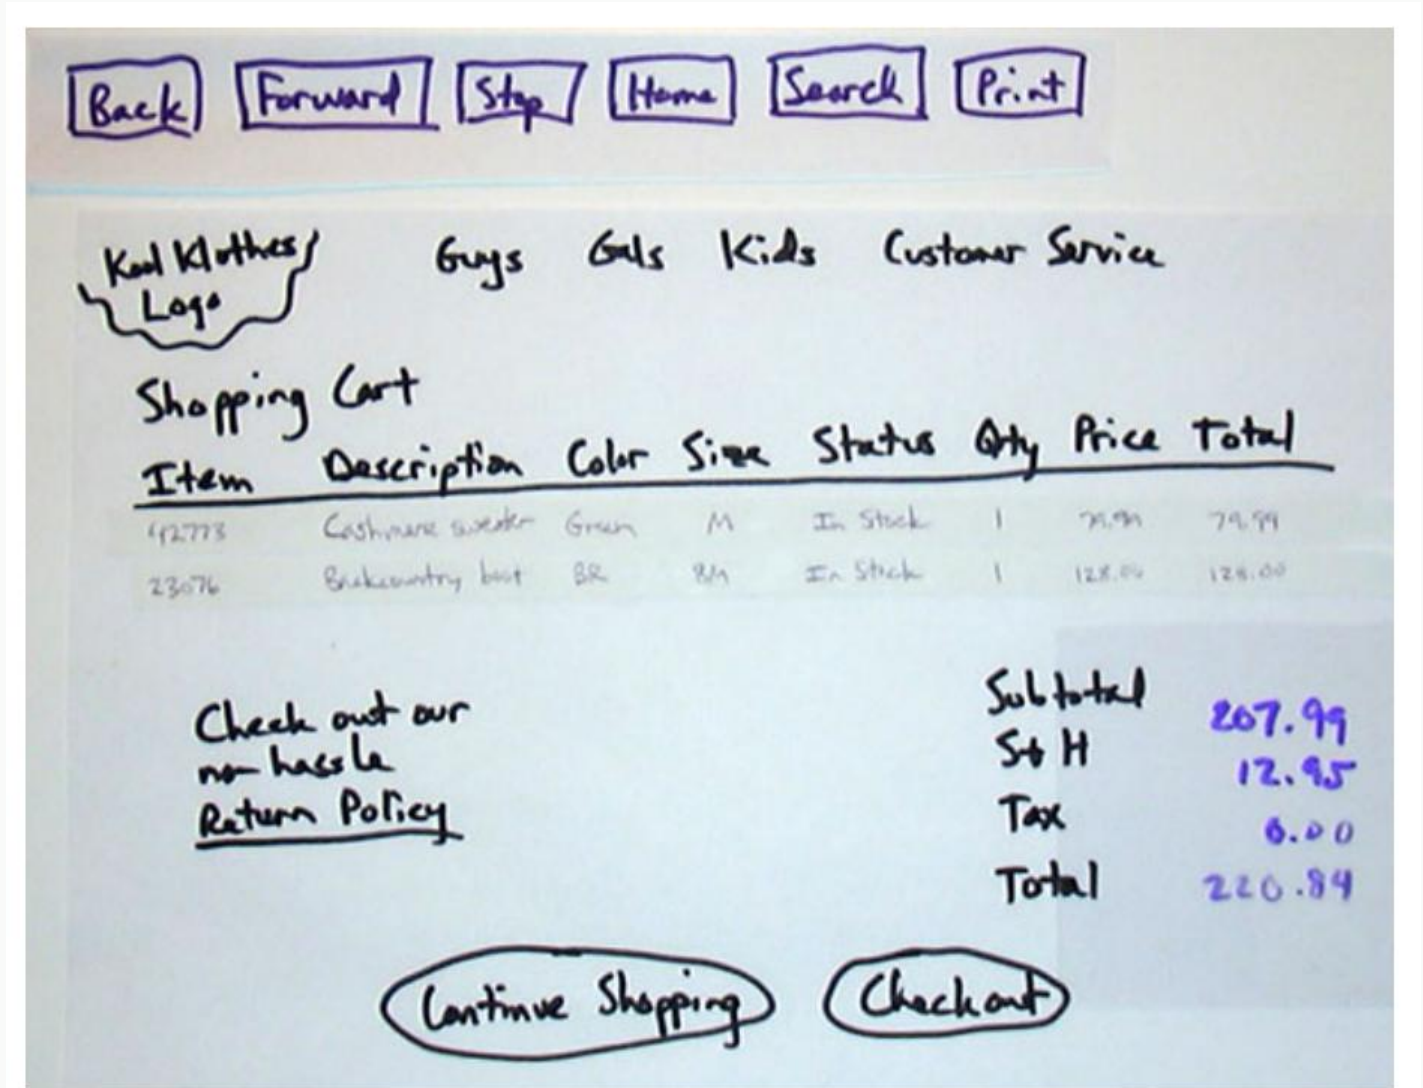 Back Forward Stop Home Search Print
Kool Klothes Guys Gals Kids Customer Service
Logo
Shopping Cart
Item Description Color Size Status Qty Price Total
42773 Cashmere sweater Green M In Stock 1 79.99 79.99
23076 Backcountry boot BR 8M In Stock 1 128.00 128.00
Check out our
no hassle
Return Policy
Subtotal 207.99
S+H 12.95
Tax 0.00
Total 220.94
Continue Shopping Checkout